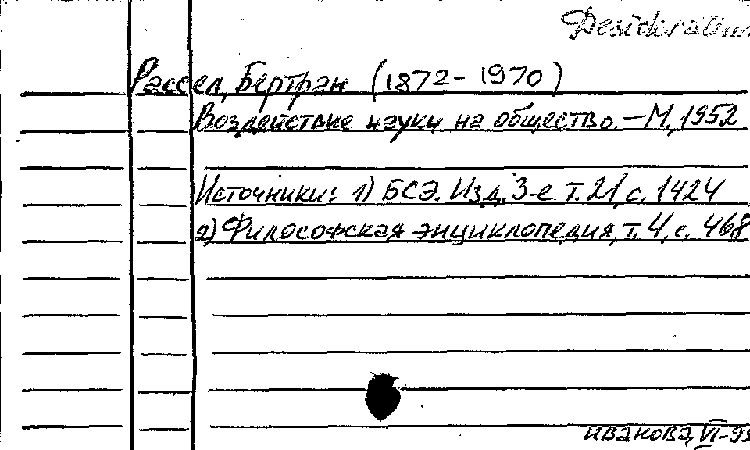 Desideratum
Рассел, Бертран (1872-1970)
Воздействие науки на общество. - М, 1952
Источники: 1) БСЭ. Изд. 3-е т. 21, с. 1424
2) Философская энциклопедия, т. 4, с. 468
Иванова, VI-93